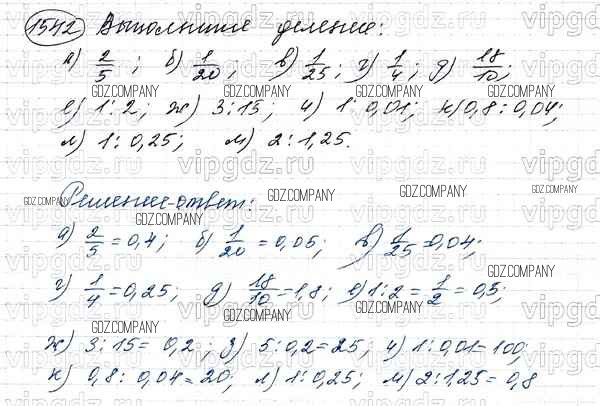 1542 Выполните деление:
а) 2/5 ; б) 1/20 ; в) 1/25 ; г) 1/4 ; д) 18/10 ;
е) 1:2 ; ж) 3:15 ; и) 1:0,01 ; к) 0,8:0,04 ;
л) 1:0,25 ; м) 2:1,25.
Решение-ответ:
а) 2/5 = 0,4 ; б) 1/20 = 0,05 ; в) 1/25 = 0,04 ;
г) 1/4 = 0,25 ; д) 18/10 = 1,8 ; е) 1:2 = 1/2 = 0,5 ;
ж) 3:15 = 0,2 ; з) 5:0,2 = 25 ; и) 1:0,01 = 100 ;
к) 0,8:0,04 = 20 ; л) 1:0,25 ; м) 2:1,25 = 0,8
vipgdz.ru
GDZ.COMPANY